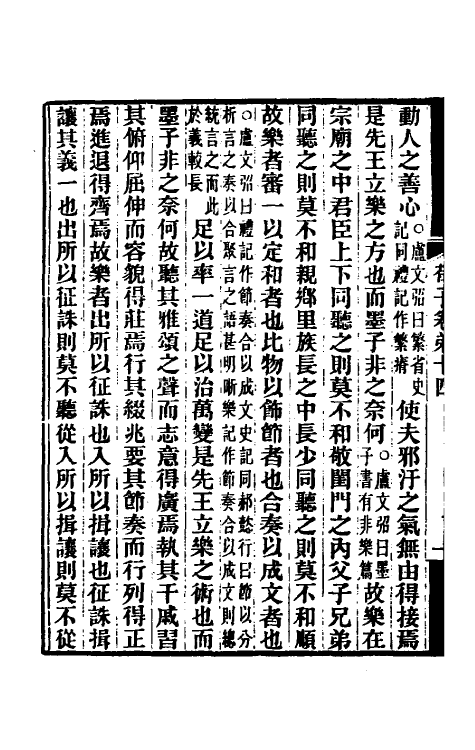 荀子卷第十四
一
動人之善心○盧文弨曰繁省史記同禮記作繁瘠使夫邪汙之氣無由得接焉
是先王立樂之方也而墨子非之奈何○盧文弨曰墨子書有非樂篇故樂在
宗廟之中君臣上下同聽之則莫不和敬閨門之內父子兄弟
同聽之則莫不和親鄉里族長之中長少同聽之則莫不和順
故樂者審一以定和者也比物以飾節者也合奏以成文者也
○盧文弨曰禮記作節奏合以成文史記同郝懿行曰節以分析言之奏以合聚言之語甚明晰樂記作節奏合以成文則總
統言之而此於義較長足以率一道足以治萬變是先王立樂之術也而
墨子非之奈何故聽其雅頌之聲而志意得廣焉執其干戚習
其俯仰屈伸而容貌得莊焉行其綴兆要其節奏而行列得正
焉進退得齊焉故樂者出所以征誅也入所以揖讓也征誅揖
讓其義一也出所以征誅則莫不聽從入所以揖讓則莫不從